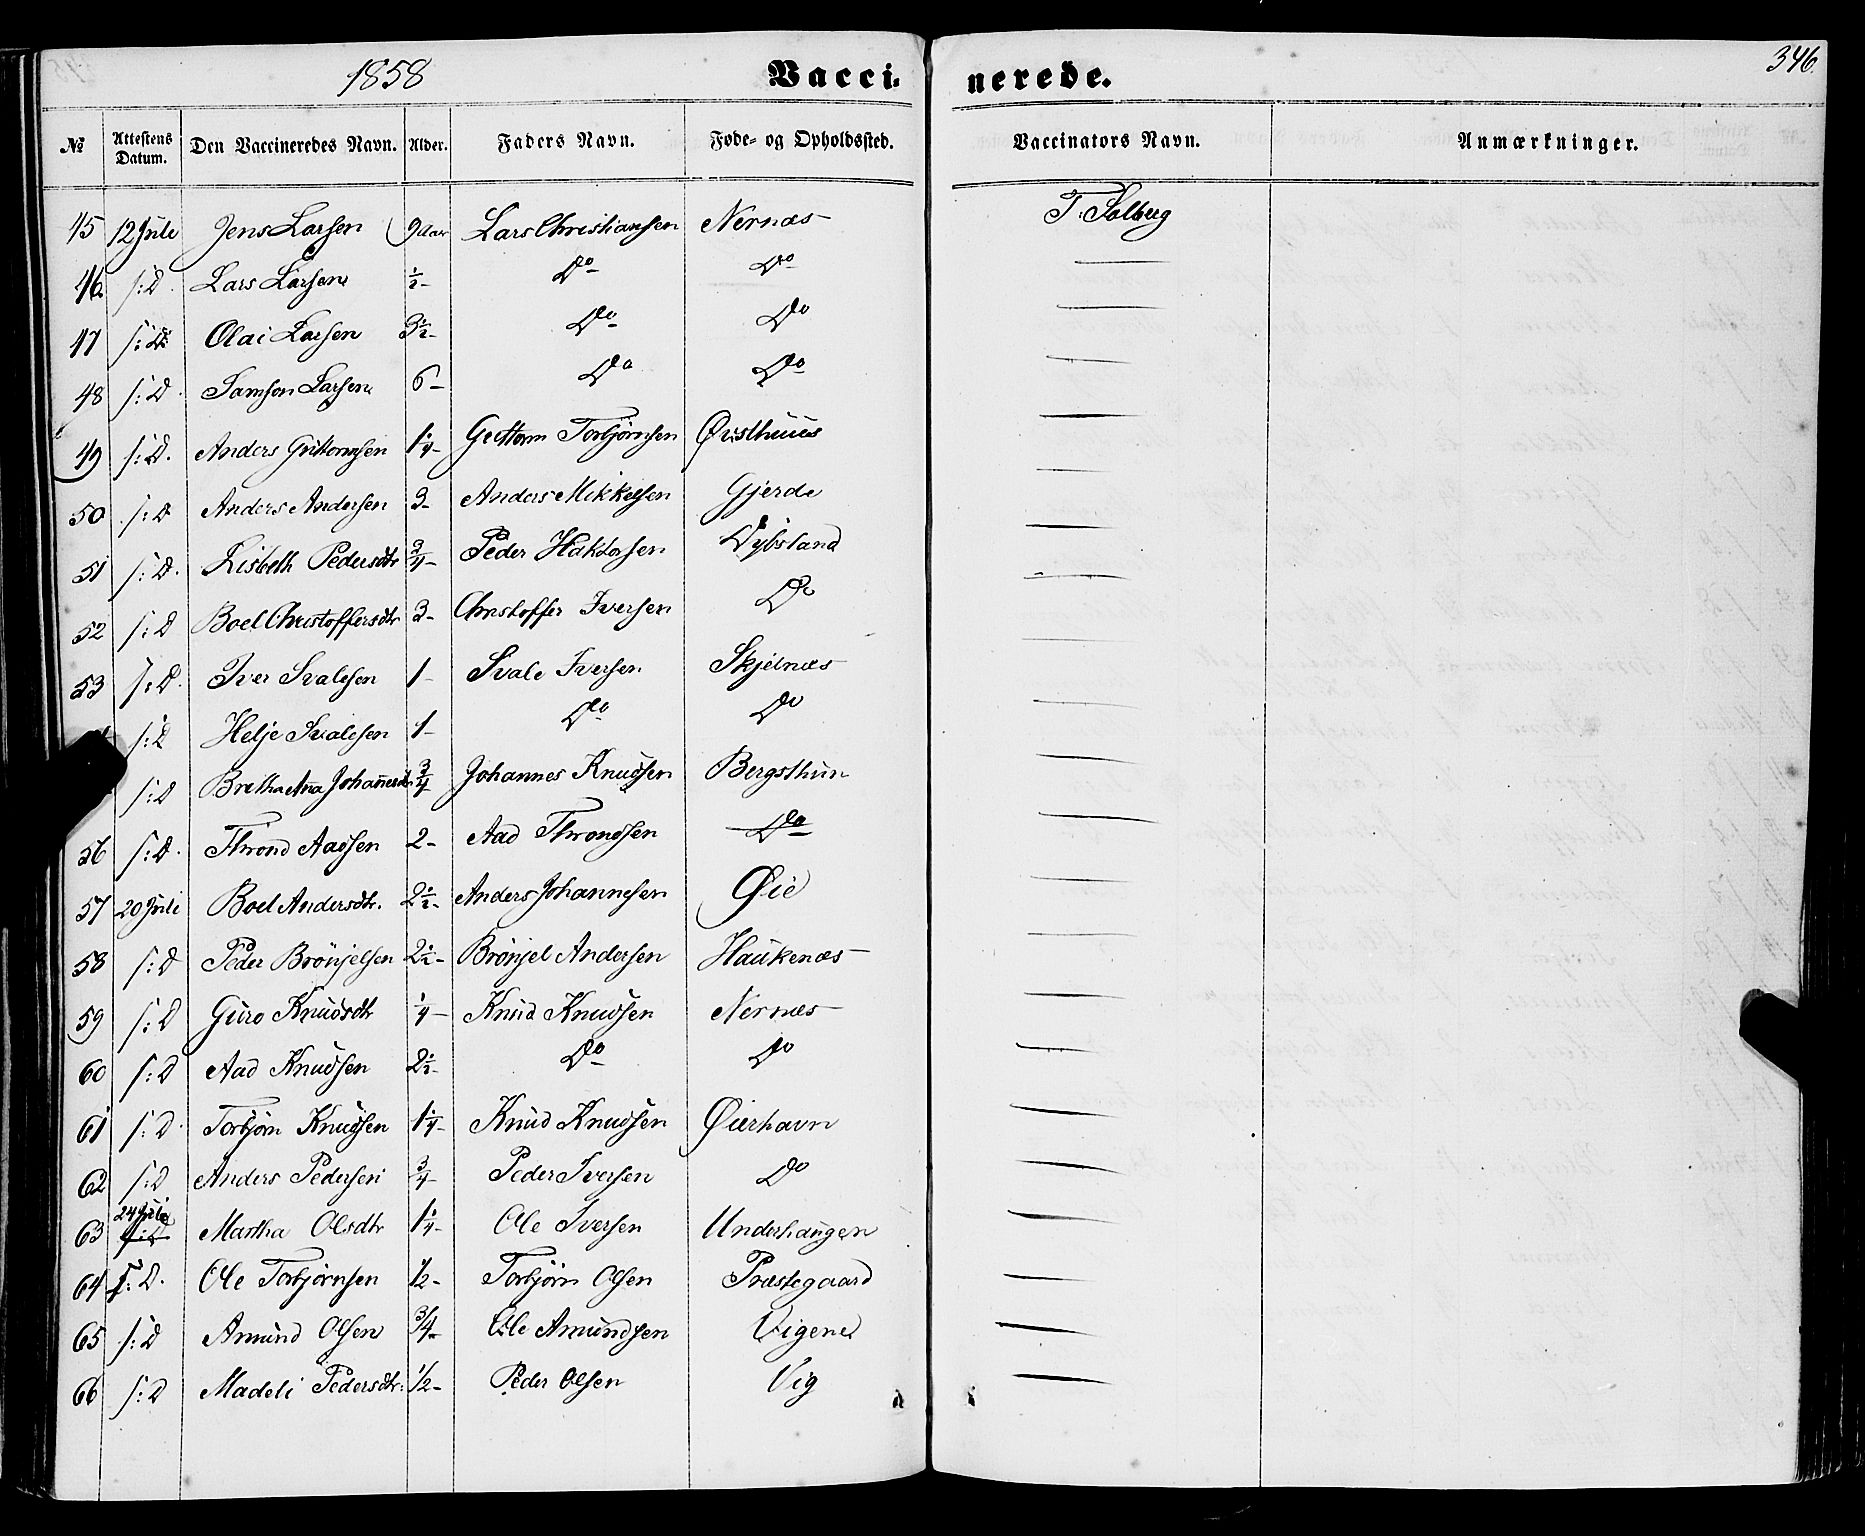 1858 Vacci- nerede. 346.
№ Attestens Datum. Den Vaccineredes Navn. Alder. Faders Navn. Føde- og Opholdssted. Vaccinators Navn. Anmærkninger.
45 12 Juli Jens Larsen 9 Aar Lars Christiansen Nernæs T. Solberg
46 s: D. Lars Larsen ½- Do Do —
47 s: D. Olai Larsen 3½- Do Do —
48 s: D. Samson Larsen 6- Do Do —
49 s: D. Anders Guttormsen 1¼- Guttorm Torbjørnsen Øvsthuus —
50 s: D Anders Andersen 3- Anders Mikkelsen Gjerde —
51 s: D. Lisbeth Pedersdtr ¾- Peder Haktorsen Dybsland —
52 s: D Boel Christoffersdtr 3- Christoffer Iversen Do —
53 s: D. Iver Svalesen 1- Svale Iversen Skjelnæs —
s: D Helje Svalesen 1- Do Do —
s: D Bretha Anna Johannesdtr ¾ Johannes Knudsen Bergsthun —
56 s: D. Thrond Aadsen 2- Aad Throndsen Do —
57 20 Juli Boel Andersdtr. 2½- Anders Johannesen Øie —
58 s: D Peder Brönjelsen 2½- Brönjel Andersen Haukenæs —
59 s: D Guro Knudsdtr ¼- Knud Knudsen Nernæs —
60 s: D Aad Knudsen 2½- Do Do —
61 s: D. Torbjørn Knudsen 1¼- Knud Knudsen Øierhavn —
62 s: D Anders Pedersen ¾- Peder Iversen Do —
63 24 Juli Martha Olsdtr 1¼- Ole Iversen Underhaugen —
64 s: D. Ole Torbjørnsen ½- Torbjörn Olsen Præstegaard —
65 s: D Amund Olsen ¾- Ole Amundsen Vigene —
66 s: D Madeli Pedersdtr: ½- Peder Olsen Vig —